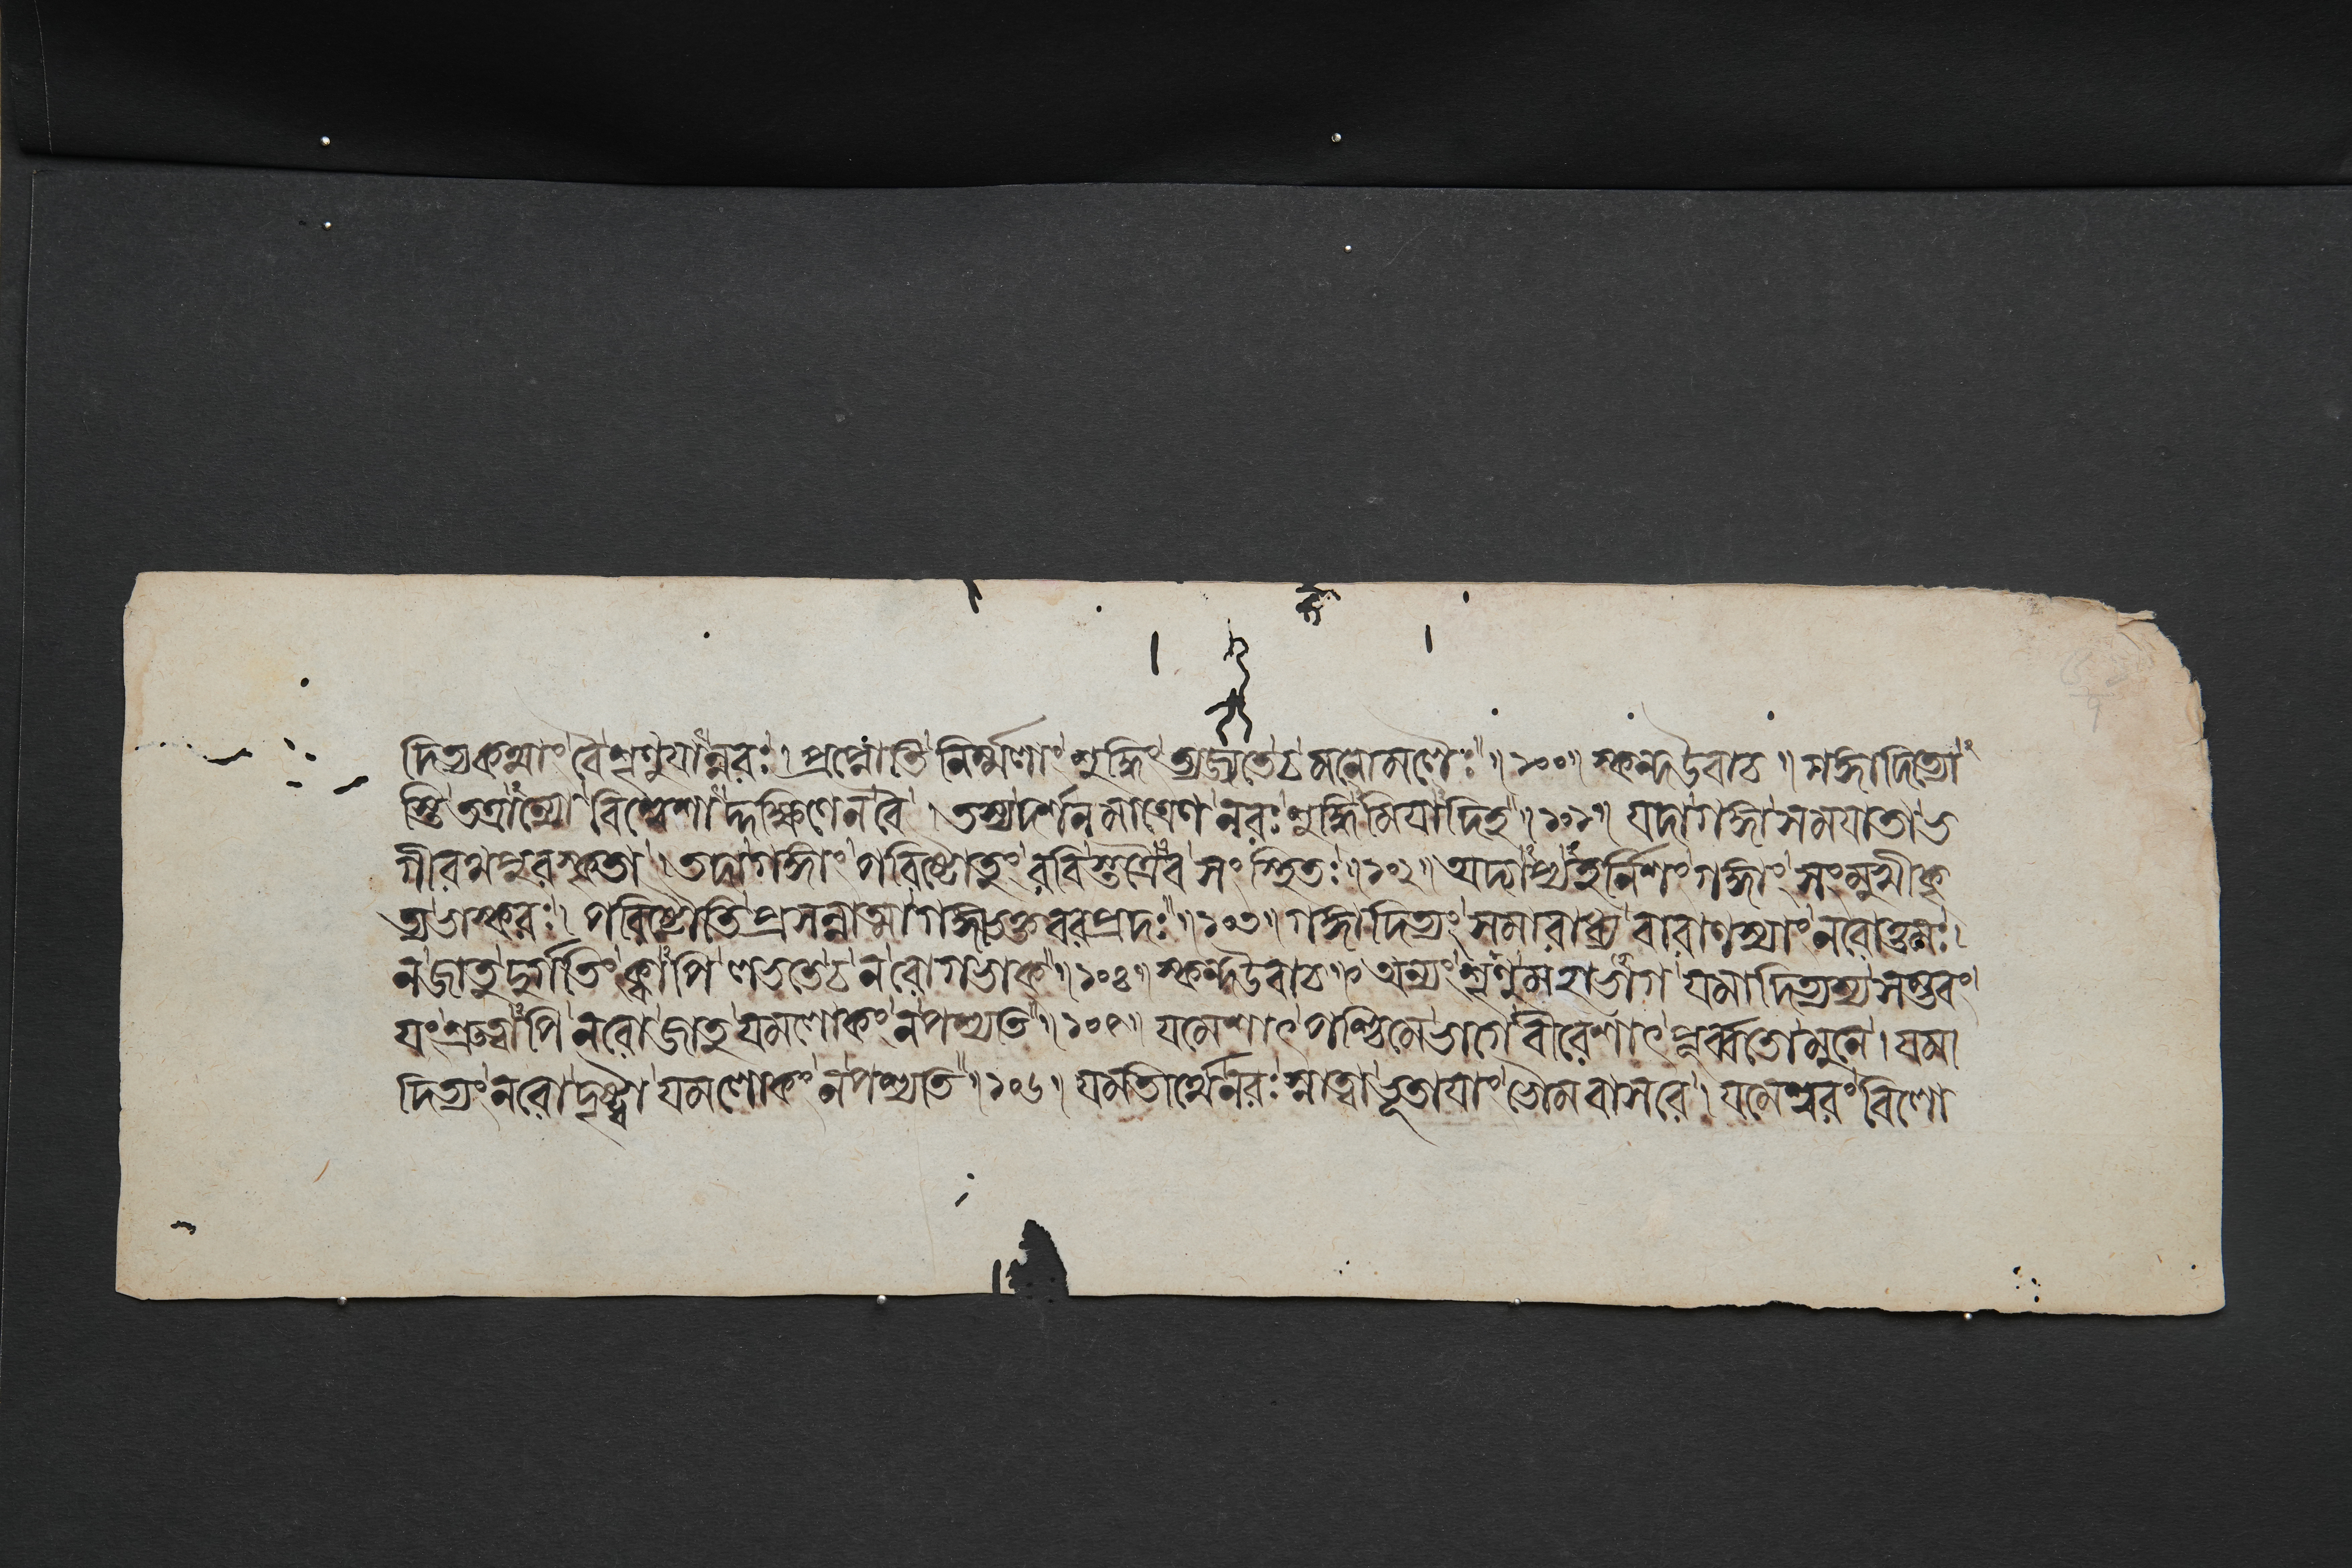 দিত্যকথাং বৈ শৃণুযান্নরঃ। প্রাপ্নোতি নির্ম্মলাং শুদ্ধিং ত্যজ্যতে চ মনোমলৈঃ॥১০০॥ স্কন্দ উবাচ॥ গঙ্গাদিত্যো
স্তি তত্রান্যো বিশ্বেশাদ্দক্ষিণেন বৈ। তস্য দর্শনমাত্রেণ নরঃ শুদ্ধিমিযাদিহ॥১০১॥ যদা গঙ্গা সমাযাতা ভ
গীরথপুরস্কৃতা। তদা গঙ্গাং পরিষ্টোতুং রবিস্তত্রৈব সংস্থিতঃ॥১০২॥ অদ্যাপ্যহর্নিশং গঙ্গাং সংমুখীকৃ
ত্য ভাস্করঃ। পরিষ্টৌতি প্রসন্নাত্মা গঙ্গাভক্তবরপ্রদঃ॥১০৩॥ গঙ্গাদিত্যং সমারাধ্য বারাণস্যাং নরোত্তমঃ।
ন জাতু দুর্গতিং ক্বাপি লভতে চ ন রোগভাক্॥১০৪॥ স্কন্দ উবাচ॥ অন্যং শৃণু মহাভাগ যমাদিত্যস্য সম্ভবং।
যং শ্রুত্বাপি নরো জাতু যমলোকং ন পশ্যতি॥১০৫॥ যমেশাৎ পশ্চিমে ভাগে বীরেশাৎ পূর্ব্বতো মুনে। যমা
দিত্যং নরো দৃষ্ট্বা যমলোকং ন পশ্যতি॥১০৬॥ যমতীর্থে নরঃ স্নাত্বা ভূতাযাং ভৌমবাসরে। যমেশ্বরং বিলো